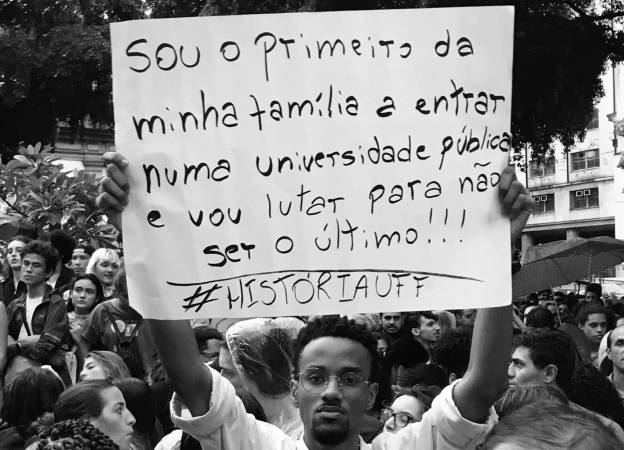 Sou o primeiro da
minha família a entrar
numa universidade pública
e vou lutar para não
ser o último!!!
#HISTÓRIAUFF